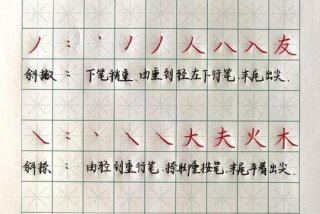 丿：丶丿丿人八入友
斜撇：下笔稍重.由重到轻左下行笔.末尾出尖.
㇏：丶㇏㇏大夫火木
斜捺：由轻到重行笔.捺脚重按笔.末尾平着出尖.